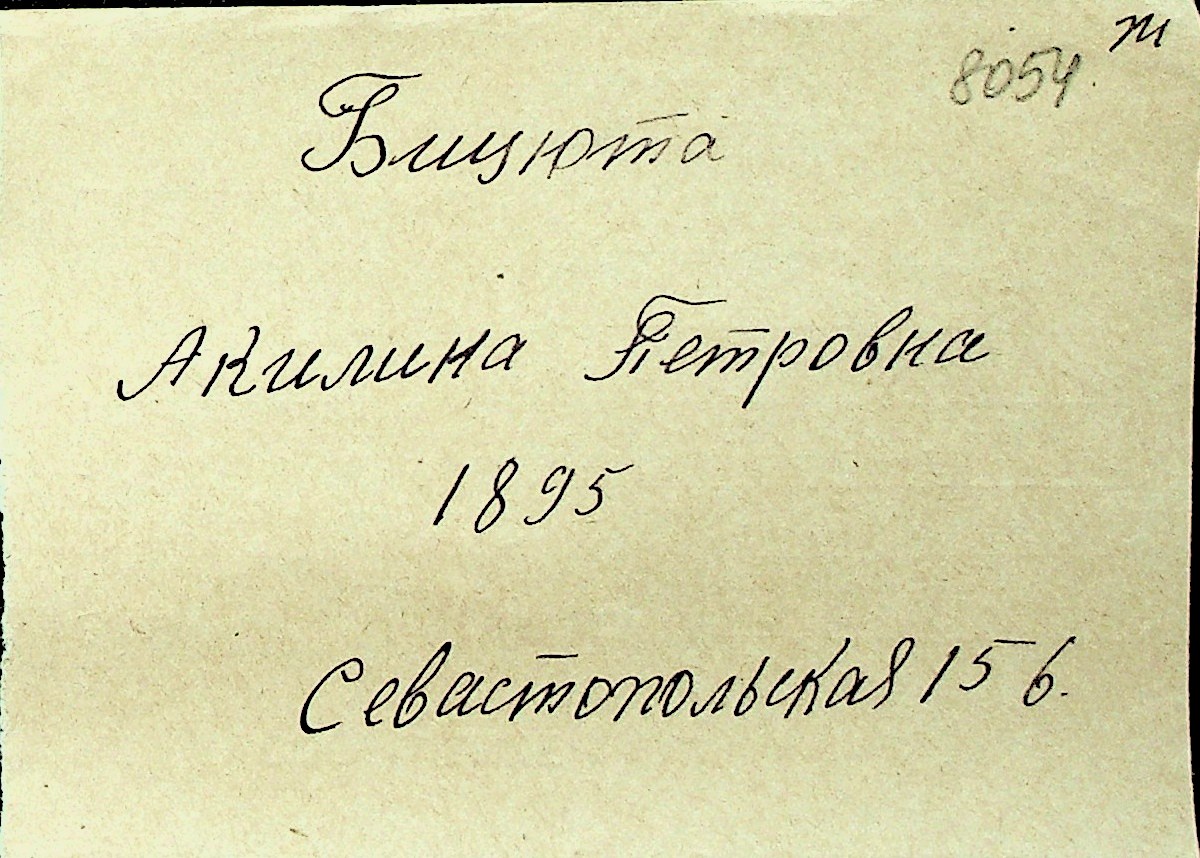 8054. т
Бицюта
Акилина Петровна
1895
Севастопольская 15 б.